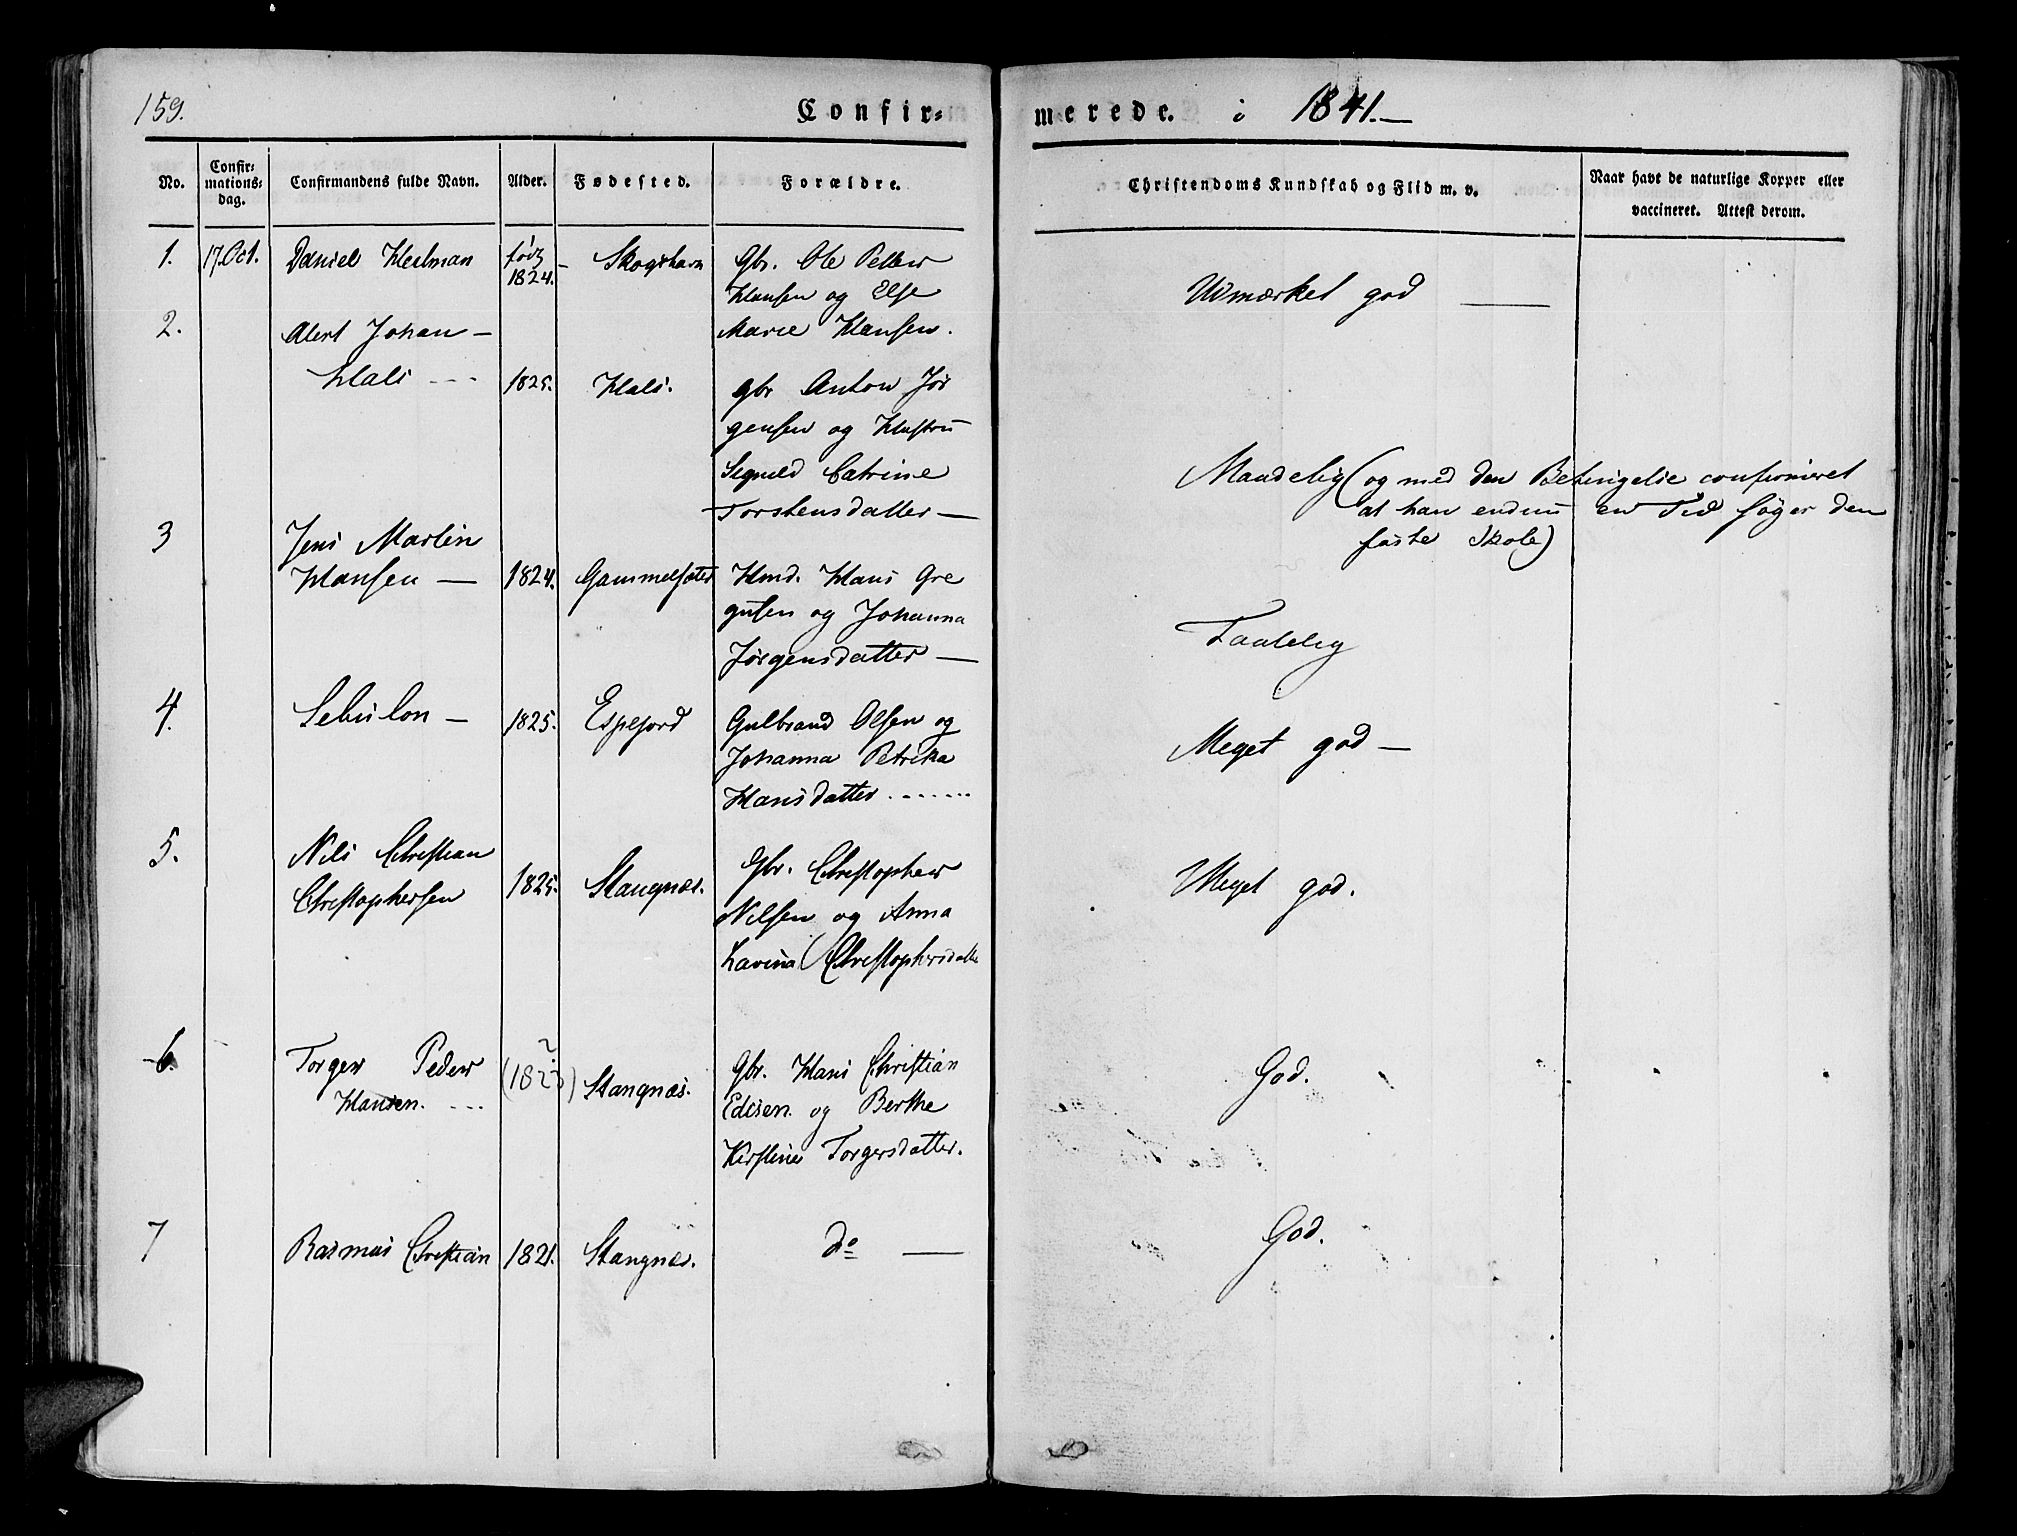 159.
Confir=
merede. i 1841.—
No.
Confir=
mations=
dag.
Confirmandens fulde Navn.
Alder.
Fødested.
Forældre.
Christendoms Kundskab og Flid m. v.
Naar havt de naturlige Kopper eller
vaccineret. Attest derom.
1. 17. Oct. Daniel Heelman født 1824. – Skogshavn Gbr. Ole Petter
Hansen og Else
Marie Hansen.
Udmærket god —
2. Alert Johan –
Hals --- 1825. Hals. gbr Anton Jør
gensen og Hustru
Catrine
Torstensdatter —
Maadelig (og med den Betingelse confirmeret
at han endnu en Tid søger den
faste Skole)
3 Jens Martin
Hansen — 1824. Gammelsæter Hmd. Hans Gre
gusen og Johanna
Jørgensdatter —
Taalelig
4. Sebulon – 1825. Espefjord Gulbrand Olsen og
Johanna Petrika
Hansdatter .......
Meget god —
5. Nils Christian
Christophersen 1825. Stangnæs. Gbr. Christopher
Nilsen og Anna
Lavina (Christophersdatte
Meget god.
6. Torger Peder
Hansen. --- (1823) ? Stangnæs. Gbr. Hans Christian
Edisen. og Berthe
Kirstine Torgersdatter.
God.
7 Rasmus Christian 1821. Stangnæs. do —
God.